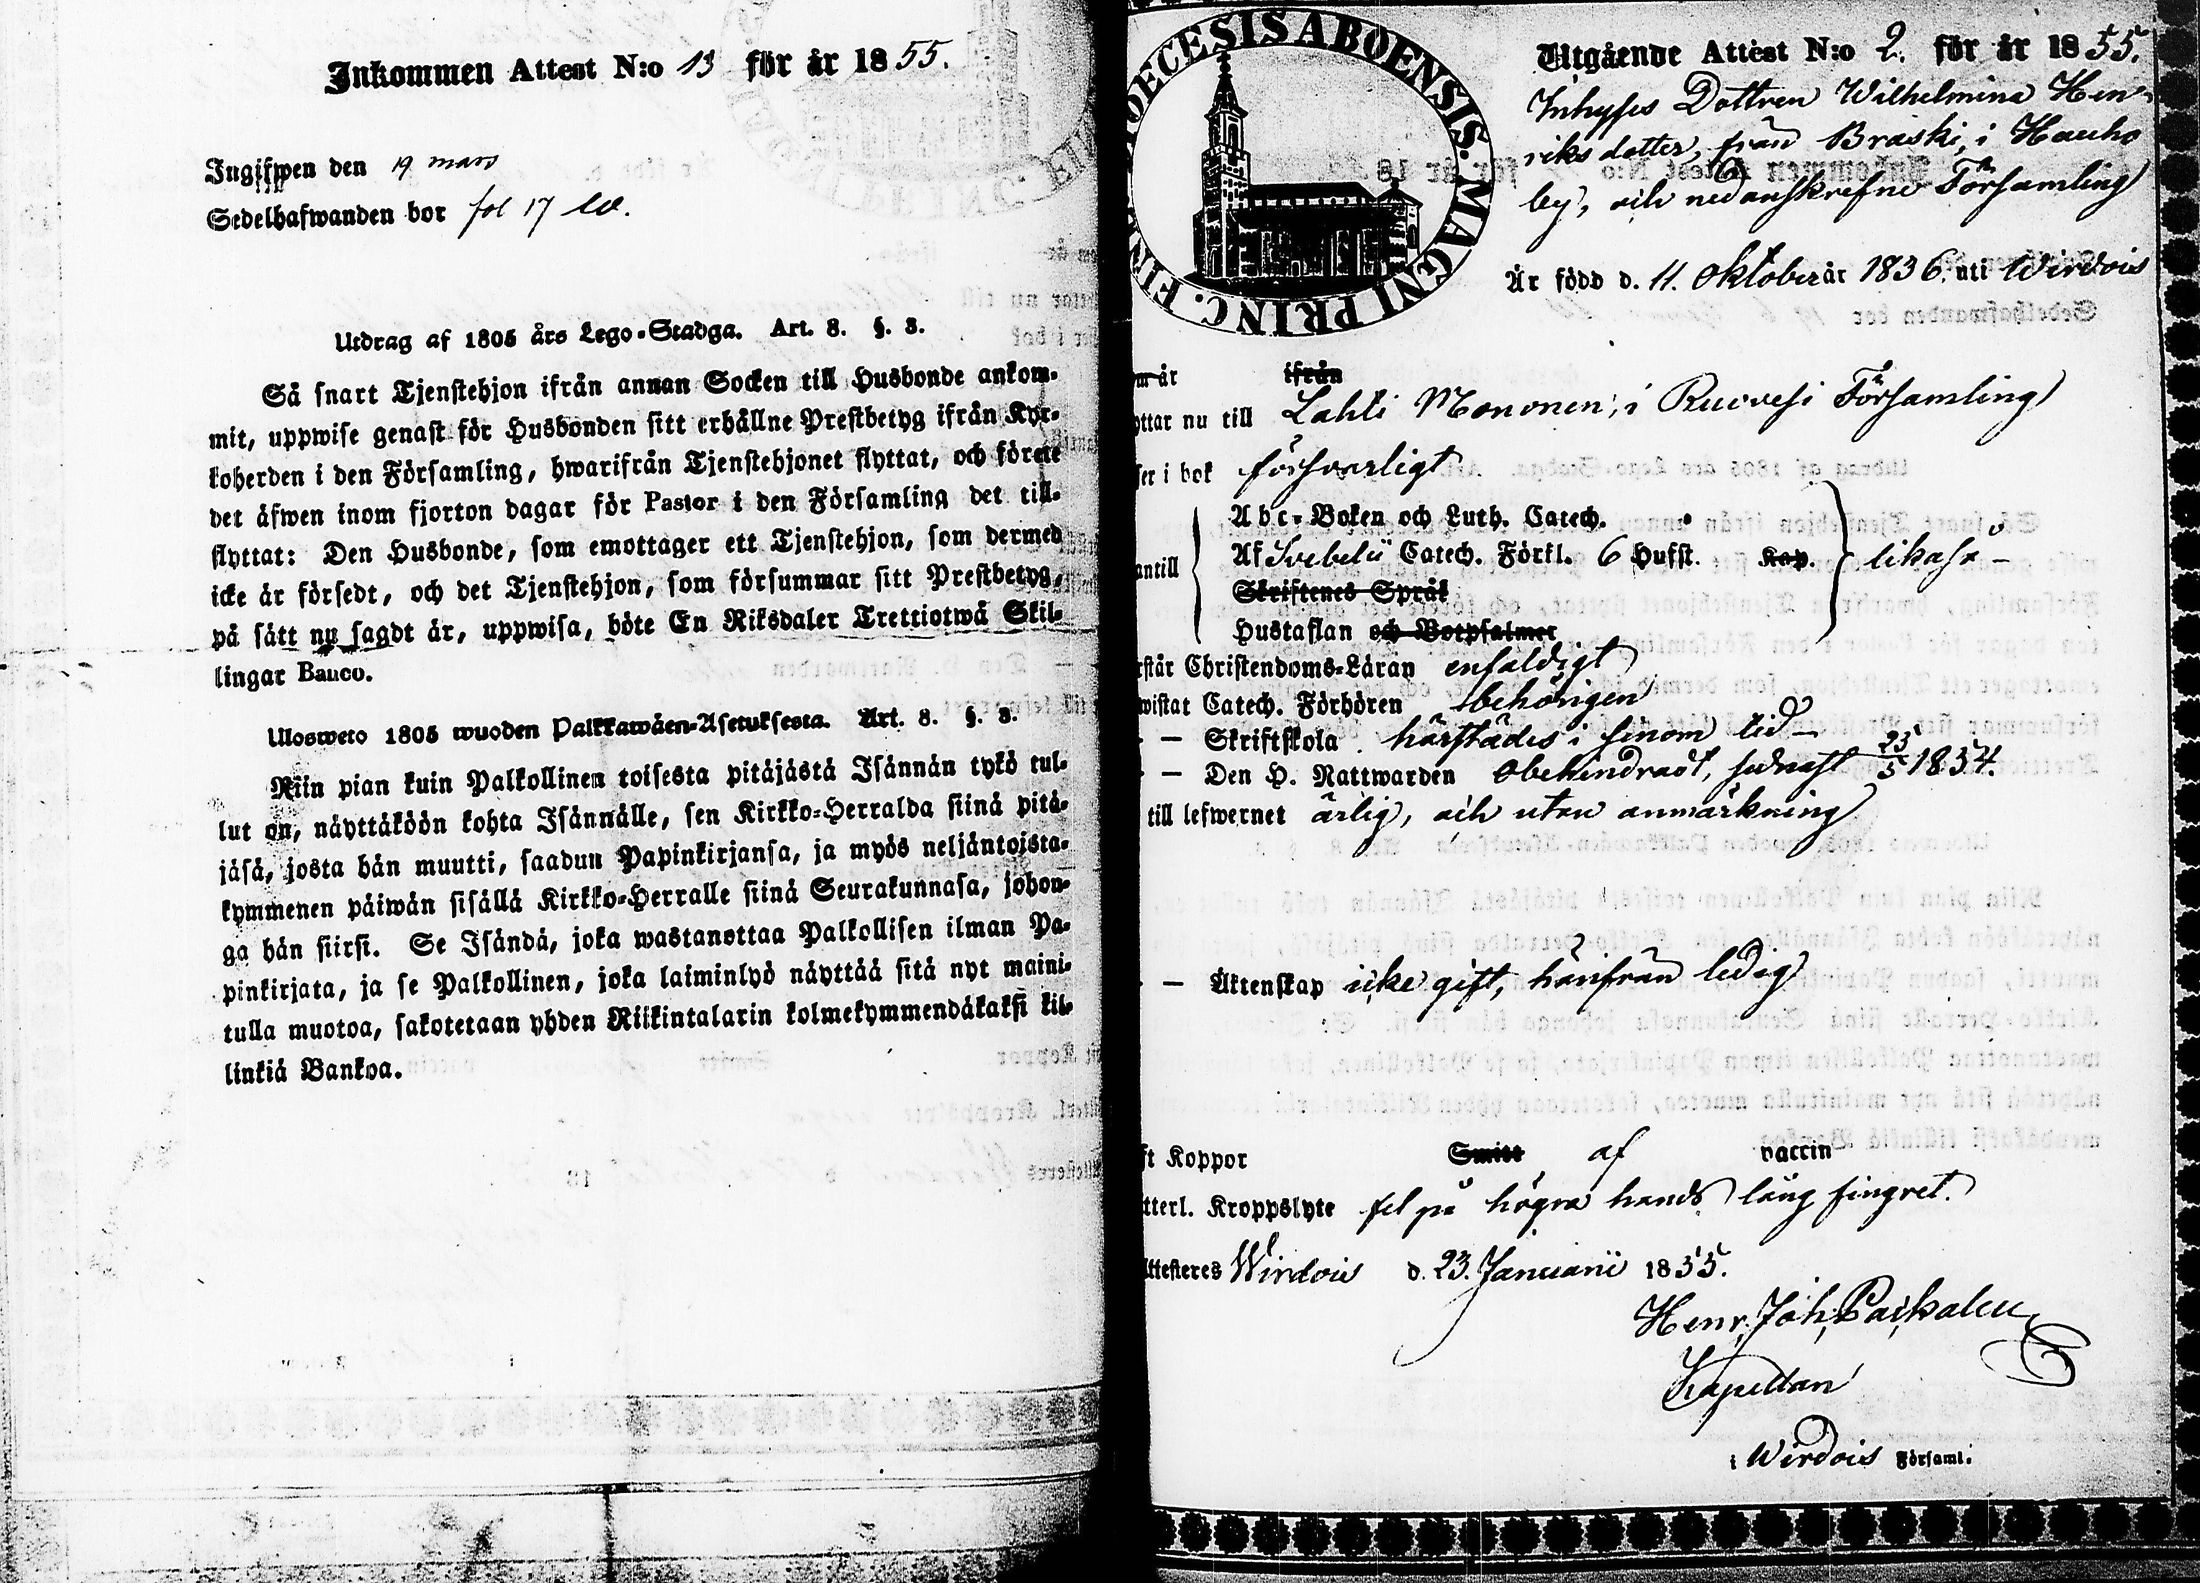 Inkommen Attest N:o 13 för år 1855.
Ingifwen den 19 mars
Sedelhafwanden bor fol 17
Utdrag af 1805 års Lego-Stadga. Art. 8. §. 3.
Så snart Tjenstehjon ifrån annan Socken till Husbonde ankom-
mit, uppwise genast för Husbonden sitt erhållne Prestbetyg ifrån Kyr-
koherden i den Församling, hwarifrån Tjenstehjonet flyttat, och förete
det äfwen inom fjorton dagar för Pastor i den Församling det till-
flyttat: Den Husbonde, som emottager ett Tjenstehjon, som dermed
icke är försedt, och det Tjenstehjon, som försummar sitt Prestbetyg,
på sätt nu sagdt är, uppwisa, böte En Riksdaler Trettiotwå Skil-
lingar Banco.
Ulosweto 1805 wuoden Palkkawäen-Asetuksesta. Art. 8. §. 3.
Niin pian kuin Palkollinen toisesta pitäjästä Isännän tykö tul-
lut on, näyttäköön kohta Isännälle, sen Kirkko-Herralda siinä pitä-
jäsä, josta hän muutti, saadun Papinkirjansa, ja myös neljäntoista-
kymmenen päiwän sisällä Kirkko-Herralle siinä Seurakunnasa, johon-
ga hän siirsi. Se Isändä, joka wastanottaa Palkollisen ilman Pa-
pinkirjata, ja se Palkollinen, joka laiminlyö näyttää sitä nyt maini-
tulla muotoa, sakotetaan yhden Riikintalarin kolmekymmendäkaksi kil-
linkiä Bankoa.
DIOECESIS ABOENSIS. MAGNI PRINC. FIN
Utgående Attest N:o 2. för år 1855.
Inhyses Dottren Wilhelmina Hen-
riksdotter, från Braski, i Hauho
by, och nedanskrefne Församling
Är född d. 11. Oktober år 1836. uti Wirdois
om år ifrån
yttar nu till Lahti Mononen, i Ruovesi Församling
ser i bok försvarligt
Abc-Boken och Luth. Catech.
antill Af Svebelii Catech. Förkl. 6 Hufst. Kap. likaså -
Skriftenes Språk
Hustaflan och Botpsalmer
rstår Christendoms-Läran enfaldigt
wistat Catech. Förhören behörigen
- Skriftskola härstädes i sinom tid -
- Den H. Nattwarden obehindradt, sednast 25/5 1854.
till lefwernet ärlig, och utan anmärkning
- Äktenskap icke gift, härifrån ledig
ft Koppor Smitt af vaccin
tterl. Kroppslyte fel på högra hands lång fingret.
Attesteres Wirdois d. 23. Januarii 1855.
Henr. Joh. Paikalen
Kapellan
i Wirdois Församl.